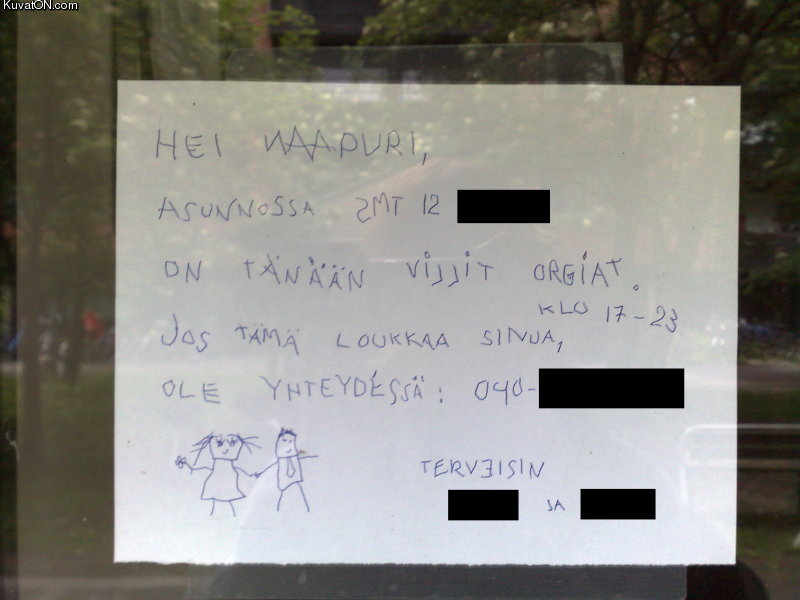 KuvatON.com
HEI NAAPURI,
ASUNNOSSA SMT 12
ON TÄNÄÄN VILLIT ORGIAT.
KLO 17-23
JOS TÄMÄ LOUKKAA SINUA,
OLE YHTEYDESSÄ: 040-
TERVEISIN
JA